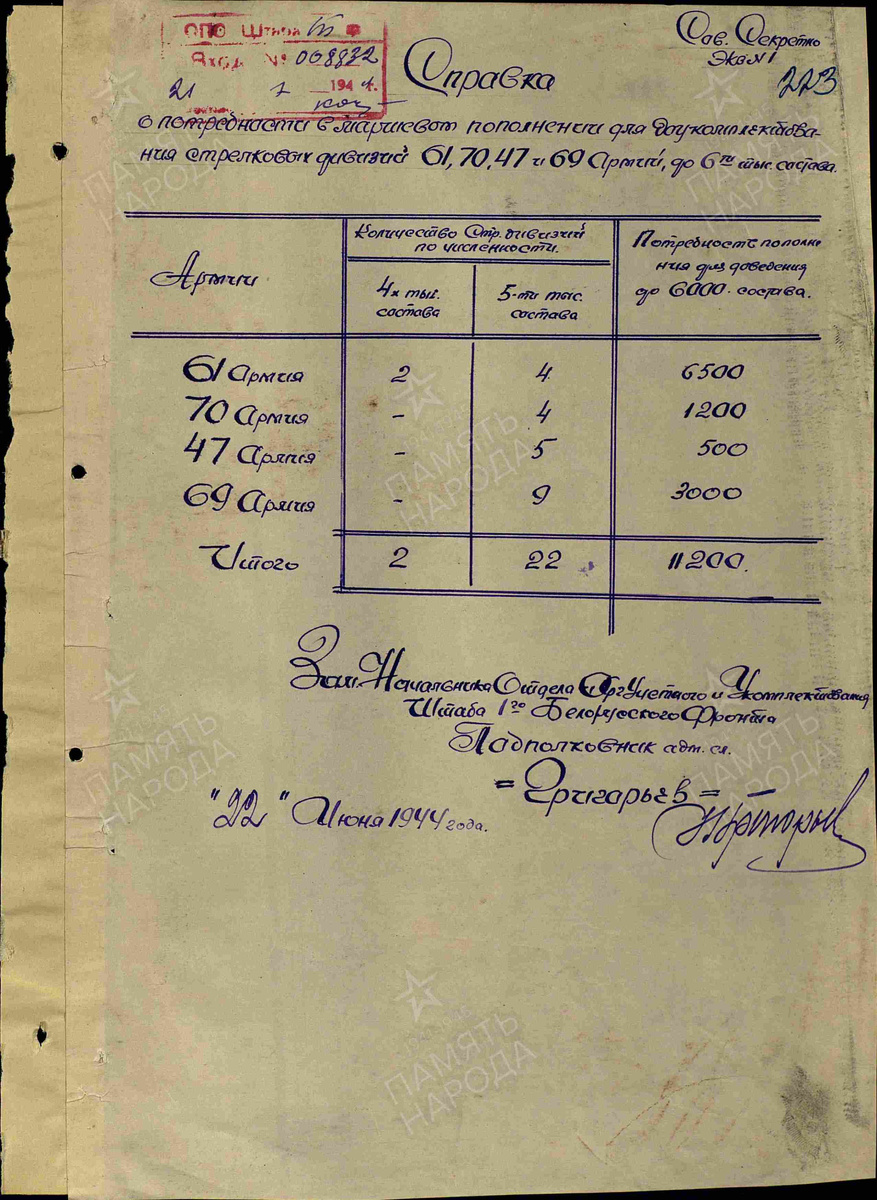 ОПО Штаба
Вход. № 068832
21 7 1944 г.
Сов. Секретно
Экз №1
223
Справка
о потребности в маршевом пополнении для доукомплектова-
ния стрелковых дивизий 61, 70, 47 и 69 Армий, до 6ти тыс. состава.
Армии
Количество Стр. дивизий
по численности.
4х тыс.
состава
5-ти тыс.
состава
Потребность пополне
ния для доведения
до 6000. состава.
61 Армия 2 4 6500
70 Армия - 4 1200
47 Армия - 5 500
69 Армия - 9 3000
Итого 2 22 11200.
Зам. Начальника Отдела ОргУчетного и Укомплектования
Штаба 1го Белорусского Фронта
Подполковник адм. сл.
= Григорьев =
"22" Июня 1944 года.
ПАМЯТЬ
НАРОДА
ПАМЯТЬ
НАРОДА
ПАМЯТЬ
НАРОДА
ПАМЯТЬ
НАРОДА
ПАМЯТЬ
НАРОДА
ПАМЯТЬ
НАРОДА